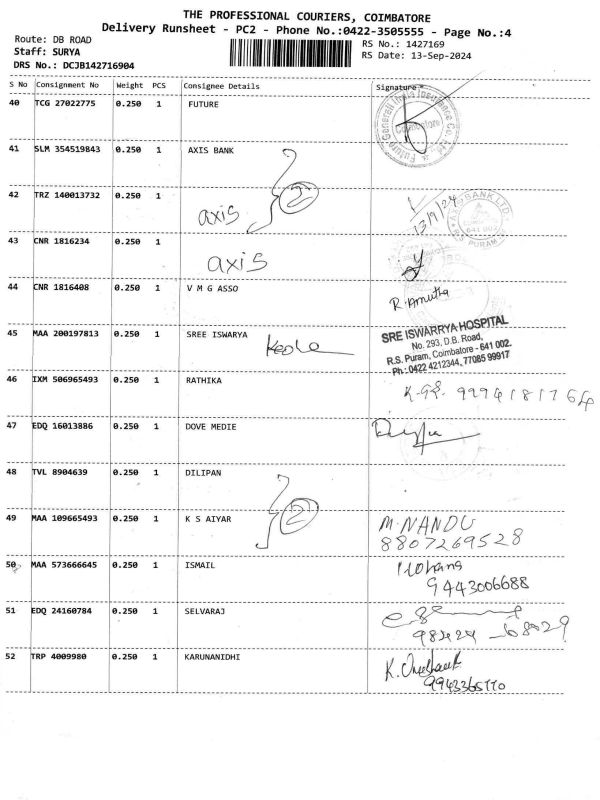 THE PROFESSIONAL COURIERS, COIMBATORE
Delivery Runsheet - PC2 - Phone No.:0422-3505555 - Page No.:4
Route: DB ROAD
RS No.: 1427169
Staff: SURYA
RS Date: 13-Sep-2024
DRS No.: DCJB142716904
S No Consignment No Weight PCS Consignee Details Signature *
40 TCG 27022775 0.250 1 FUTURE
Future Generali India Insurance Co. Ltd.
Coimbatore
41 SLM 354519843 0.250 1 AXIS BANK
2
42 TRZ 140013732 0.250 1
axis
13/9/24
BANK LTD.
R.S. PURAM
43 CNR 1816234 0.250 1
axis
44 CNR 1816408 0.250 1 V M G ASSO
R. Amutha
45 MAA 200197813 0.250 1 SREE ISWARYA
SRE ISWARRYA HOSPITAL
No. 293, D.B. Road,
R.S. Puram, Coimbatore - 641 002.
Ph : 0422 4212344, 77085 99917
46 IXM 506965493 0.250 1 RATHIKA
9994181764
47 EDQ 16013886 0.250 1 DOVE MEDIE
48 TVL 8904639 0.250 1 DILIPAN
2
49 MAA 109665493 0.250 1 K S AIYAR
M. NANDU
8807269528
50 MAA 573666645 0.250 1 ISMAIL
9443006688
51 EDQ 24160784 0.250 1 SELVARAJ
98424-68029
52 TRP 4009980 0.250 1 KARUNANIDHI
9943365770